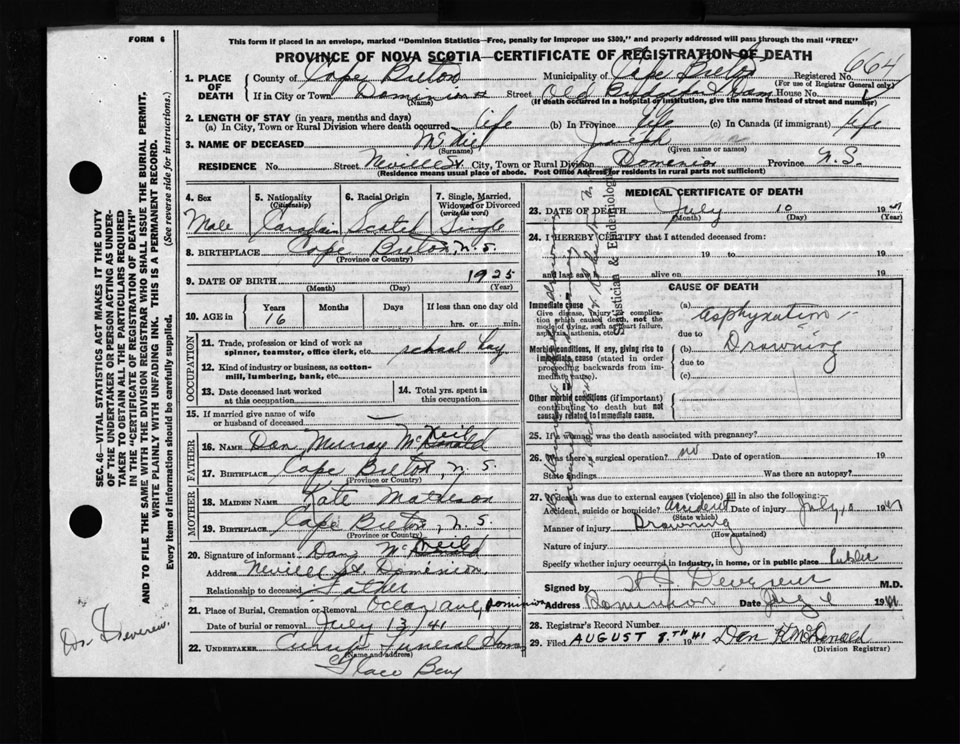 FORM 6
This form if placed in an envelope, marked "Dominion Statistics—Free, penalty for improper use $300," and properly addressed will pass through the mail "FREE"
PROVINCE OF NOVA SCOTIA—CERTIFICATE OF REGISTRATION OF DEATH
1. PLACE OF DEATH
County of Cape Breton Municipality of Cape Breton Registered No. 664
(For use of Registrar General only)
If in City or Town Dominion Street Old Dam House No.
(Name) (If death occurred in a hospital or institution, give the name instead of street and number)
2. LENGTH OF STAY (in years, months and days)
(a) In City, Town or Rural Division where death occurred life (b) In Province life (c) In Canada (if immigrant) life
3. NAME OF DECEASED McNeil Joseph
(Surname) (Given name or names)
RESIDENCE No. Street Neville St. City, Town or Rural Division Dominion Province N.S.
(Residence means usual place of abode. Post Office Address for residents in rural parts not sufficient)
4. Sex
Male
5. Nationality (Citizenship)
Canadian
6. Racial Origin
Scotch
7. Single, Married, Widowed or Divorced (write the word)
Single
8. BIRTHPLACE Cape Breton, N.S.
(Province or Country)
9. DATE OF BIRTH 1925
(Month) (Day) (Year)
10. AGE in
Years Months Days If less than one day old
16 hrs. or min.
OCCUPATION
11. Trade, profession or kind of work as spinner, teamster, office clerk, etc. school boy
12. Kind of industry or business, as cotton-mill, lumbering, bank, etc.
13. Date deceased last worked at this occupation
14. Total yrs. spent in this occupation
15. If married give name of wife or husband of deceased —
FATHER
16. NAME Dan Murray McNeil
17. BIRTHPLACE Cape Breton, N.S.
(Province or Country)
MOTHER
18. MAIDEN NAME Kate Matheson
19. BIRTHPLACE Cape Breton, N.S.
(Province or Country)
20. Signature of informant Dan McNeil
Address Neville St. Dominion
Relationship to deceased Father
21. Place of Burial, Cremation or Removal Ocean ave, Dominion
Date of burial or removal July 13/41
22. UNDERTAKER Funeral Home
(Name and address)
Glace Bay
MEDICAL CERTIFICATE OF DEATH
23. DATE OF DEATH July 10 1941
(Month) (Day) (Year)
24. I HEREBY CERTIFY that I attended deceased from:
19 to 19
and last saw alive on 19
CAUSE OF DEATH
Immediate cause
Give disease, injury or complication which caused death, not the mode of dying, such as heart failure, asphyxia, asthenia, etc.
Morbid conditions, if any, giving rise to immediate cause (stated in order proceeding backwards from immediate cause).
Other morbid conditions (if important) contributing to death but not causally related to immediate cause.
(a) Asphyxation
due to
(b) Drowning
due to
(c)
25. If a woman, was the death associated with pregnancy?
26. Was there a surgical operation? no Date of operation 19
State findings Was there an autopsy?
27. If death was due to external causes (violence) fill in also the following:
Accident, suicide or homicide? accident Date of injury July 10 1941
(State which)
Manner of injury Drowning
(How sustained)
Nature of injury
Specify whether injury occurred in industry, in home, or in public place Public
Signed by M.D.
Address Dominion Date 1941
28. Registrar's Record Number
29. Filed AUGUST 8TH 1941 Dan McDonald
(Division Registrar)
Statistician & Epidemiologist
SEC. 46—VITAL STATISTICS ACT MAKES IT THE DUTY
OF THE UNDERTAKER OR PERSON ACTING AS UNDER-
TAKER TO OBTAIN ALL THE PARTICULARS REQUIRED
IN THE "CERTIFICATE OF REGISTRATION OF DEATH"
AND TO FILE THE SAME WITH THE DIVISION REGISTRAR WHO SHALL ISSUE THE BURIAL PERMIT.
WRITE PLAINLY WITH UNFADING INK. THIS IS A PERMANENT RECORD.
Every item of information should be carefully supplied. (See reverse side for instructions.)